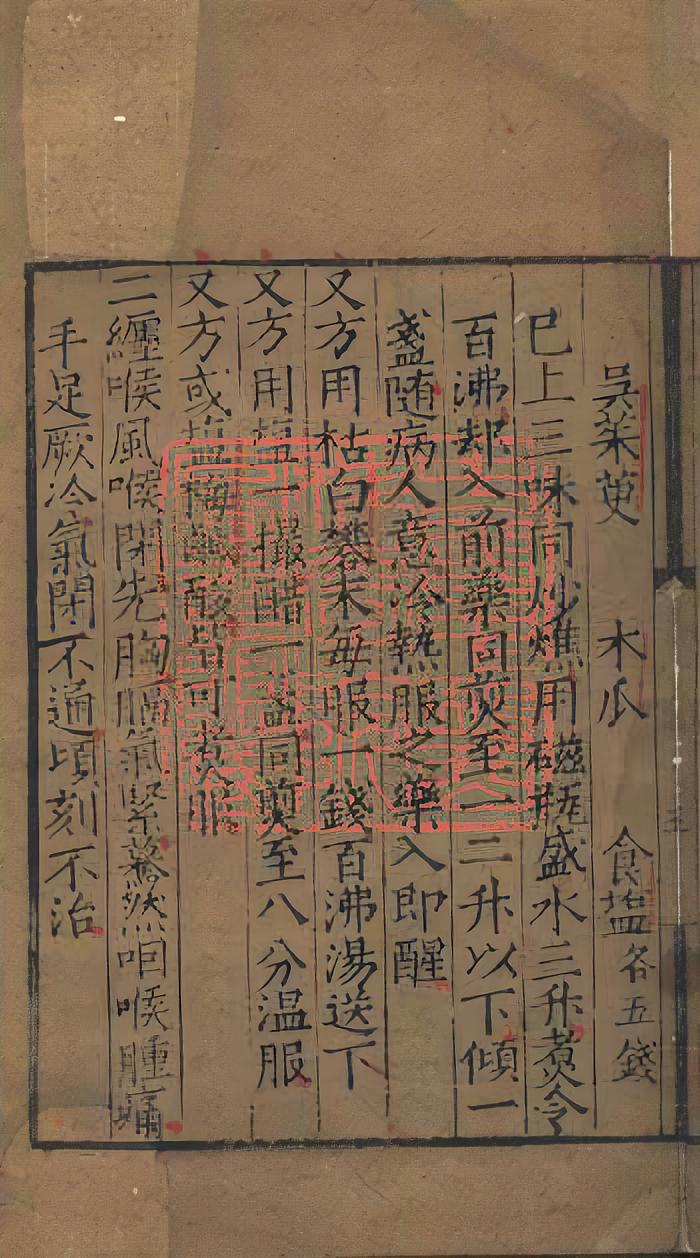 吳茱萸　木瓜　食塩各五錢
已上三味同炒燋用磁瓶盛水三升煑令
百沸却入前藥同煎至一二升以下傾一
盞随病人意冷熱服之藥入即醒
又方用枯白礬末每服一錢百沸湯送下
又方用塩一撮醋一盞同煎至八分温服
又方或塩梅醎酸皆可煑服
二纏喉風喉閉先胸膈氣緊驀然咽喉腫痛
手足厥冷氣閉不通頃刻不治